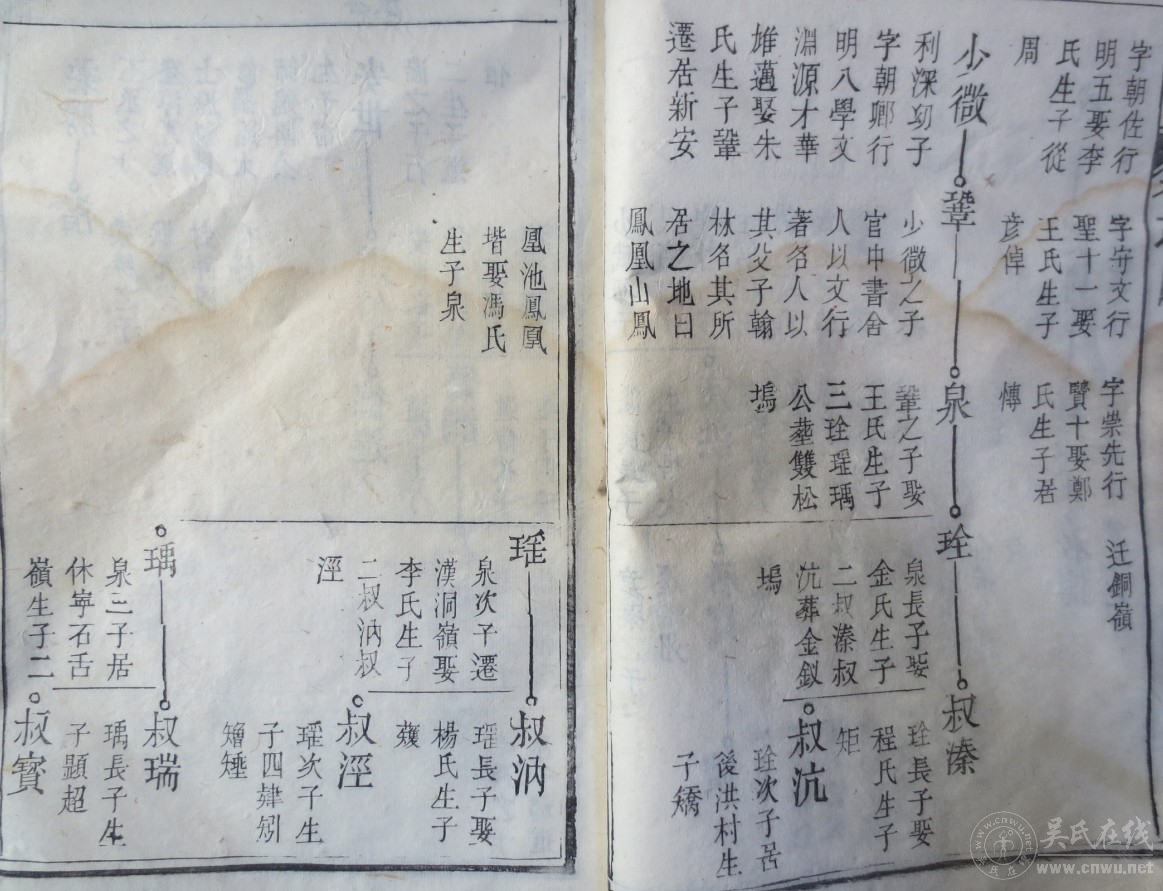 字朝佐行
明五娶李
氏生子從
周
字守文行
聖十一娶
王氏生子
彦倬
字崇先行
賢十娶鄭
氏生子居
慱
迁銅嶺
少微
利深㓛子
字朝卿行
明八學文
淵源才華
雄邁娶朱
氏生子鞏
遷居新安
鞏
少微之子
官中書舍
人以文行
著名人以
其父子翰
林名其所
居之地曰
鳳凰山鳳
凰池鳳凰
堦娶馮氏
生子泉
泉
鞏之子娶
王氏生子
三琻瑶瑀
公塟雙松
塢
琻
泉長子娶
金氏生子
二叔溱叔
沆葬金釵
塢
叔溱
琻長子娶
程氏生子
矩
叔沆
琻次子居
後洪村生
子矯
瑶
泉次子遷
漢洞嶺娶
李氏生子
二叔汭叔
涇
叔汭
瑶長子娶
楊氏生子
矱
叔涇
瑶次子生
子四肄矧
矰矬
瑀
泉三子居
休寧石舌
嶺生子二
叔瑞
瑀長子生
子顕超
叔寳
吴氏在线
www.cnwu.net